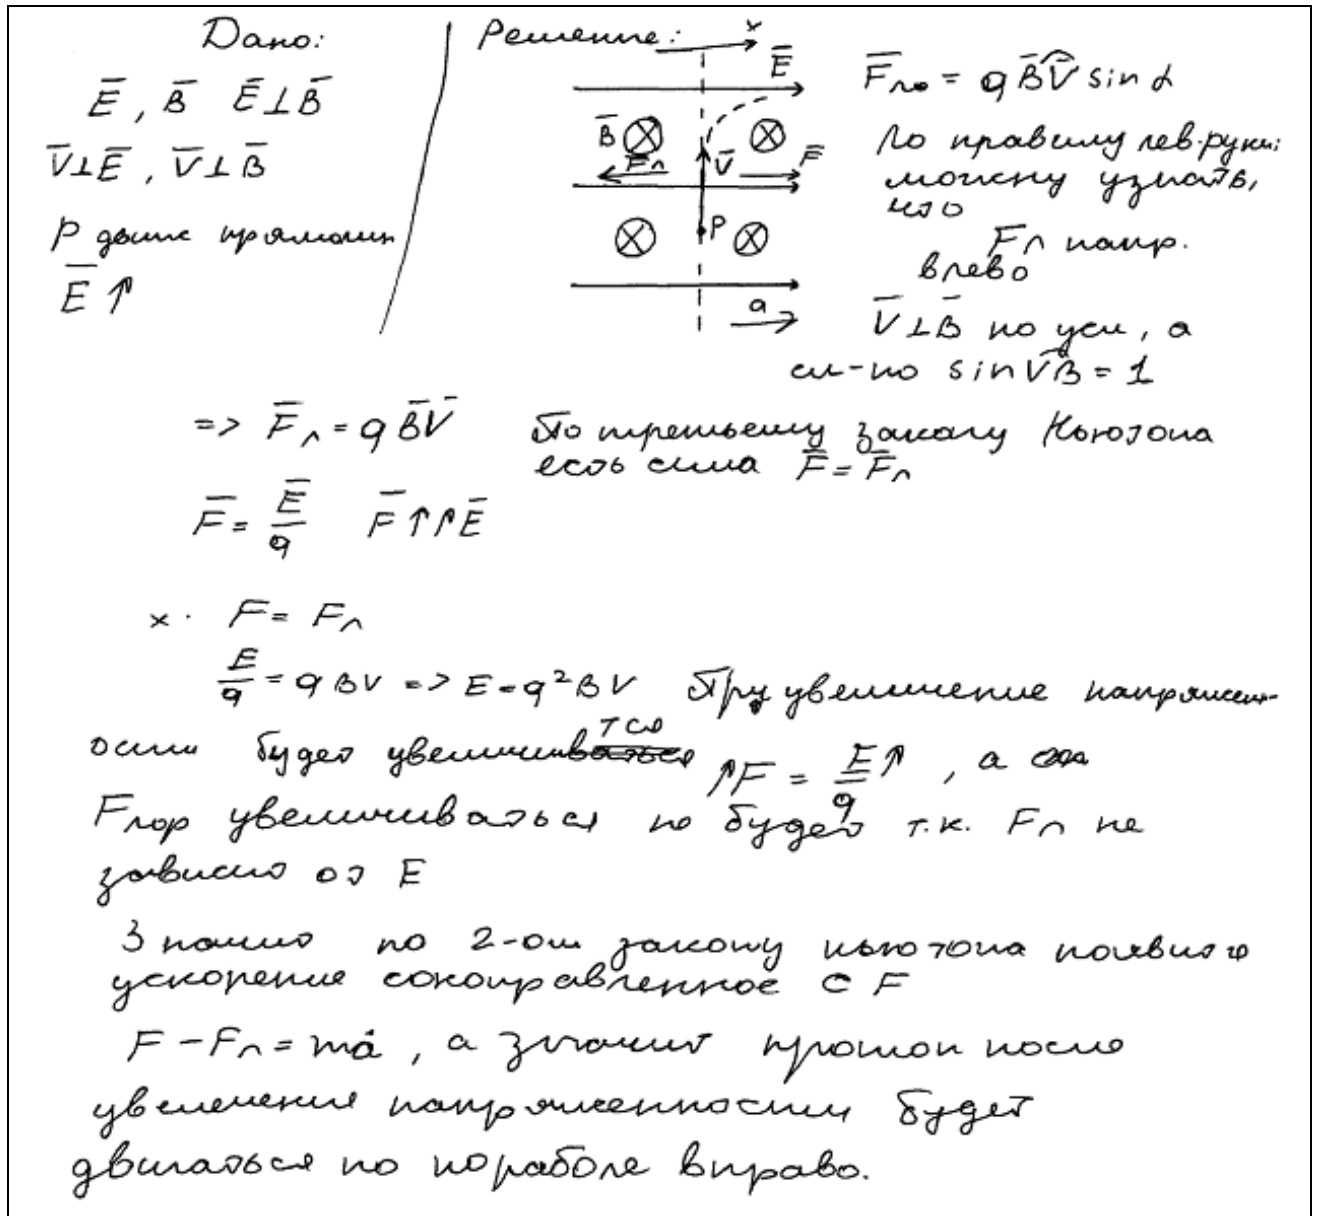 Дано:
E̅, B̅ E̅⊥B̅
V̅⊥E̅, V̅⊥B̅
P движ прямолин
E̅ ↑
Решение:
x
E̅
B̅
F̅л
V̅
F̅
P
a
F̅ло = q B̅V̅ sin α
По правилу лев.руки:
можну узнать,
что
Fл напр.
влево
V̅⊥B̅ по усл, а
сл-но sin VB = 1
=> F̅л = q B̅V̅
По третьему закону Ньютона
есть сила F̅ = F̅л
F̅ = E̅/q F̅↑↑E̅
x. F = Fл
E/q = qBV => E = q²BV При увеличение напряжен-
ости будет увеличиваться ↑F = E↑/q, а
Fлор увеличиваться не будет т.к. Fл не
зависит от E
Значит по 2-ом закону ньютона появится
ускорение сонаправленное с F
F - Fл = ma, а значит протон после
увеличения напряженности будет
двигаться по пораболе вправо.